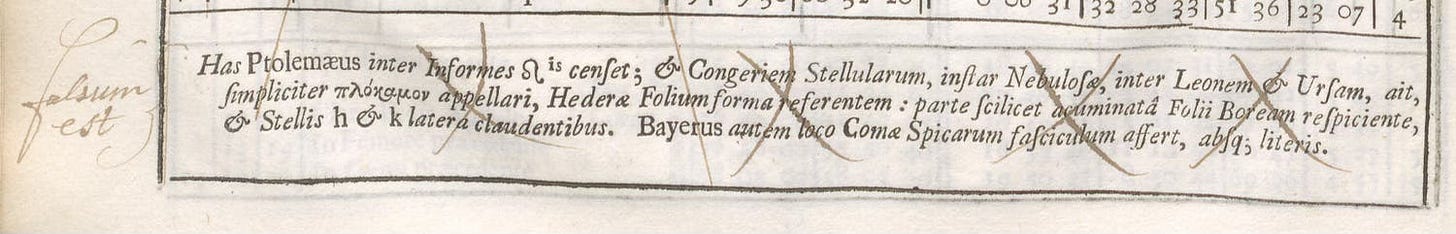 31 32 28 33 51 36 23 07 4
Has Ptolemæus inter Informes ♌ is censet; & Congeriem Stellularum, instar Nebulosæ, inter Leonem & Ursam, ait,
simpliciter πλόκαμον appellari, Hederæ Folium forma referentem : parte scilicet acuminatâ Folii Boream respiciente,
& Stellis h & k latera claudentibus. Bayerus autem loco Comæ Spicarum fasciculum affert, absq; literis.
falsum
est